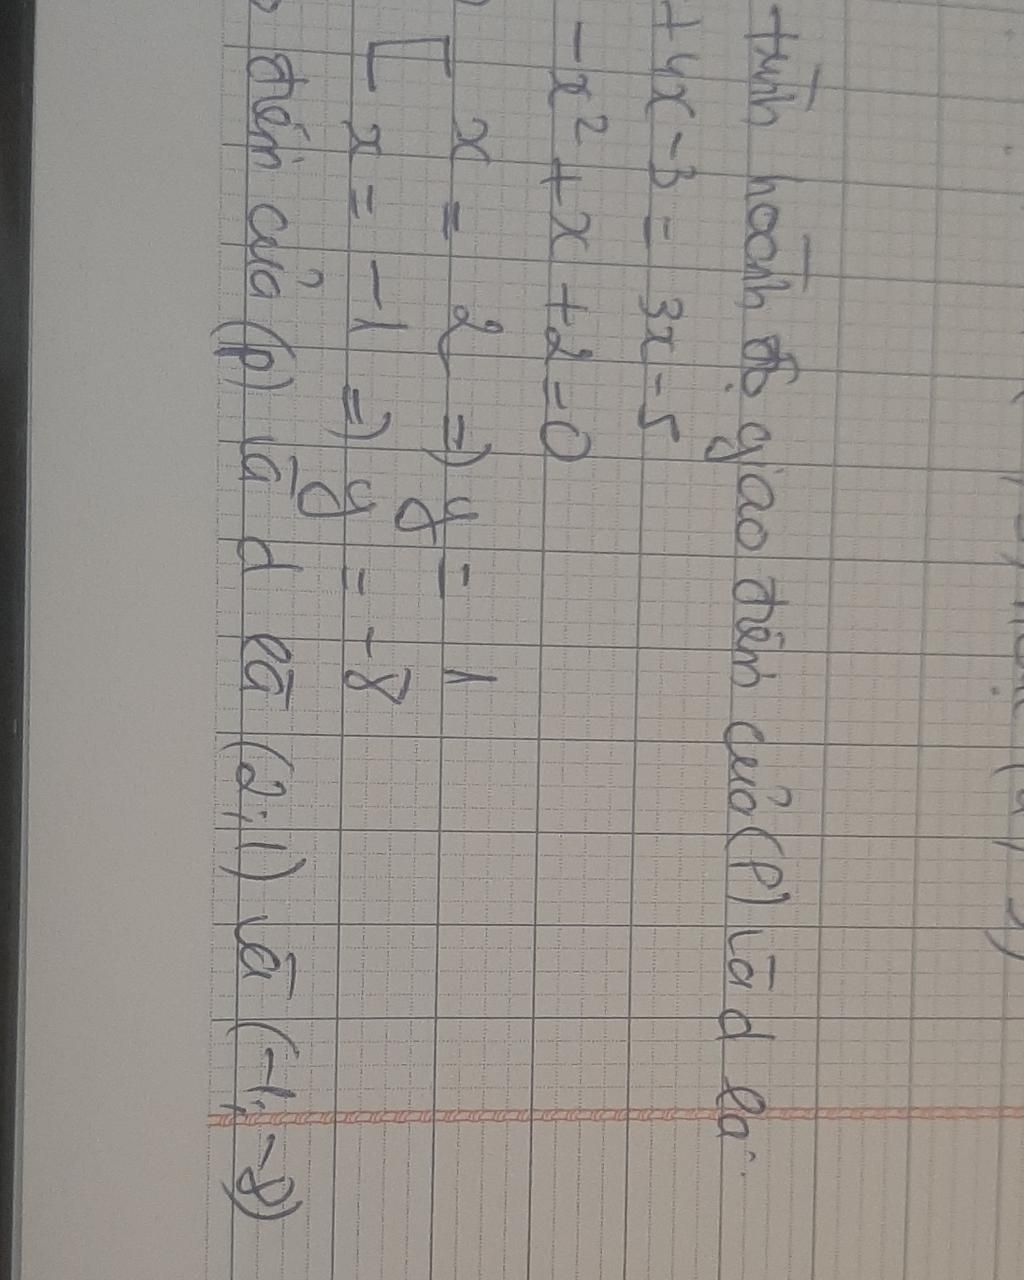 trình hoành độ giao điểm của (P) và d là:
+ 4x - 3 = 3x - 5
- x² + x + 2 = 0
[ x = 2 => y = 1
x = -1 => y = -8
điểm của (P) và d là (2;1) và (-1;-8)